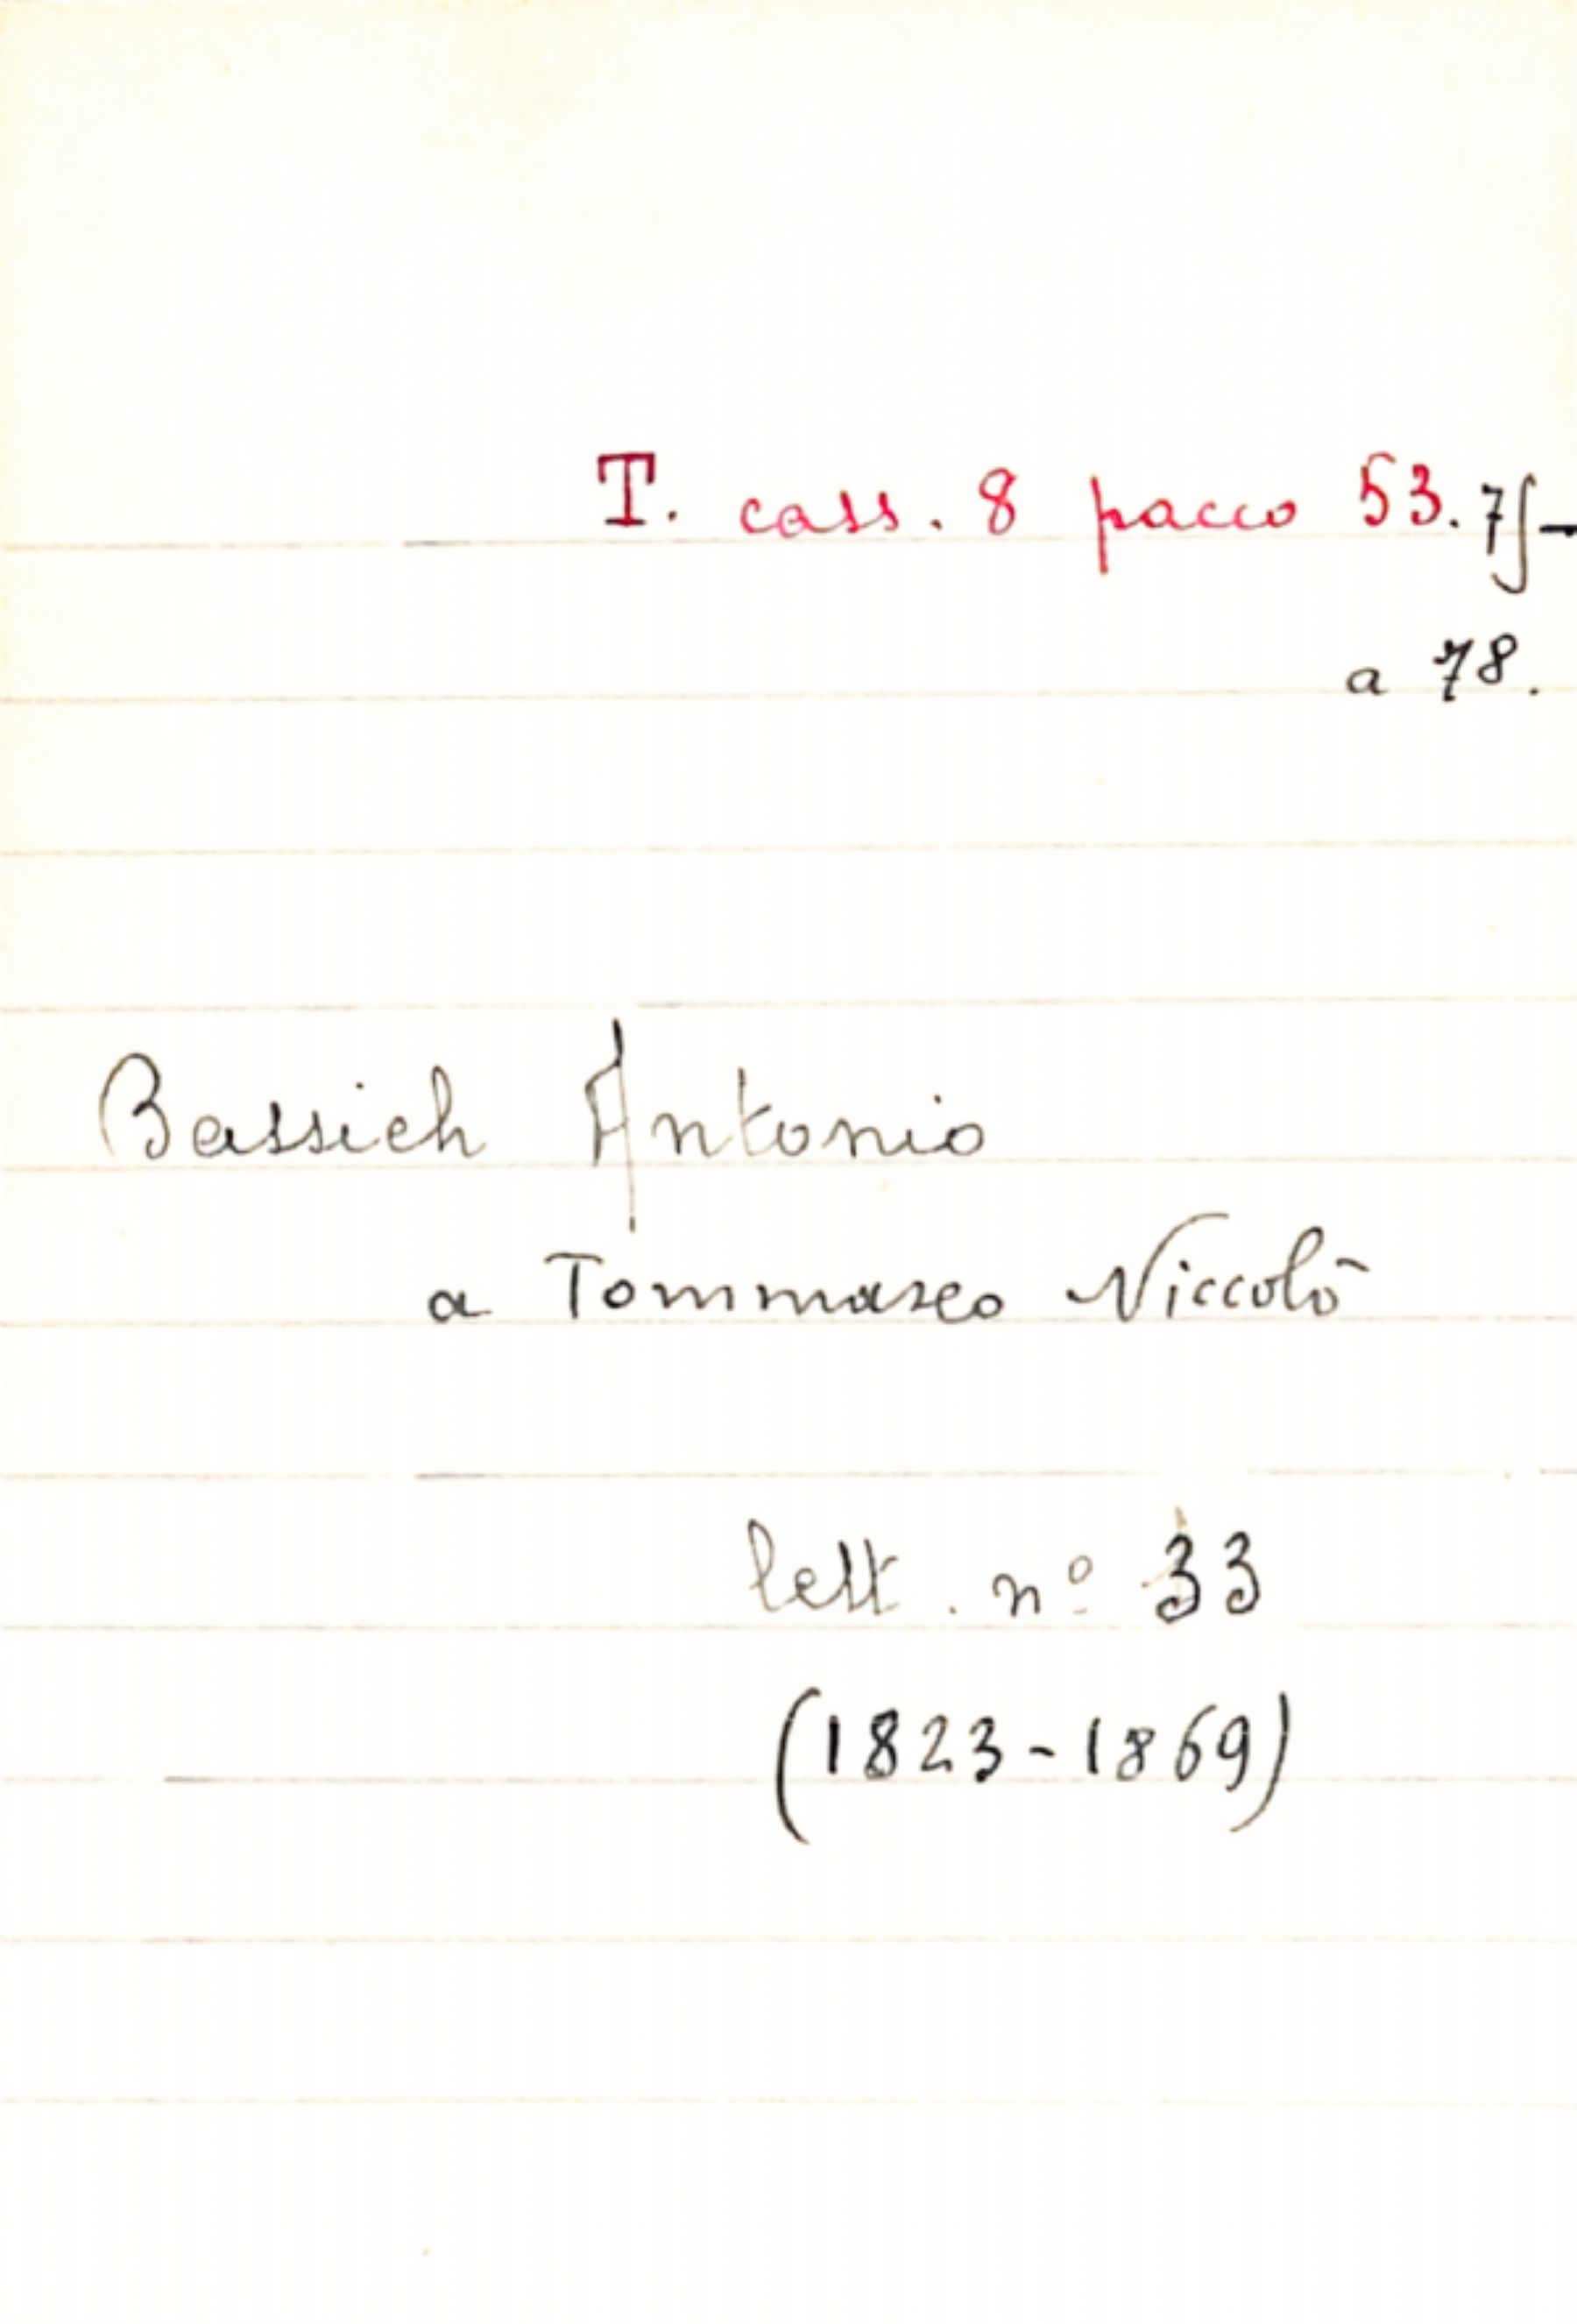 T. cass. 8 pacco 53. 75-
a 78.
Bassich Antonio
a Tommaseo Niccolò
lett. nº 33
(1823-1869)